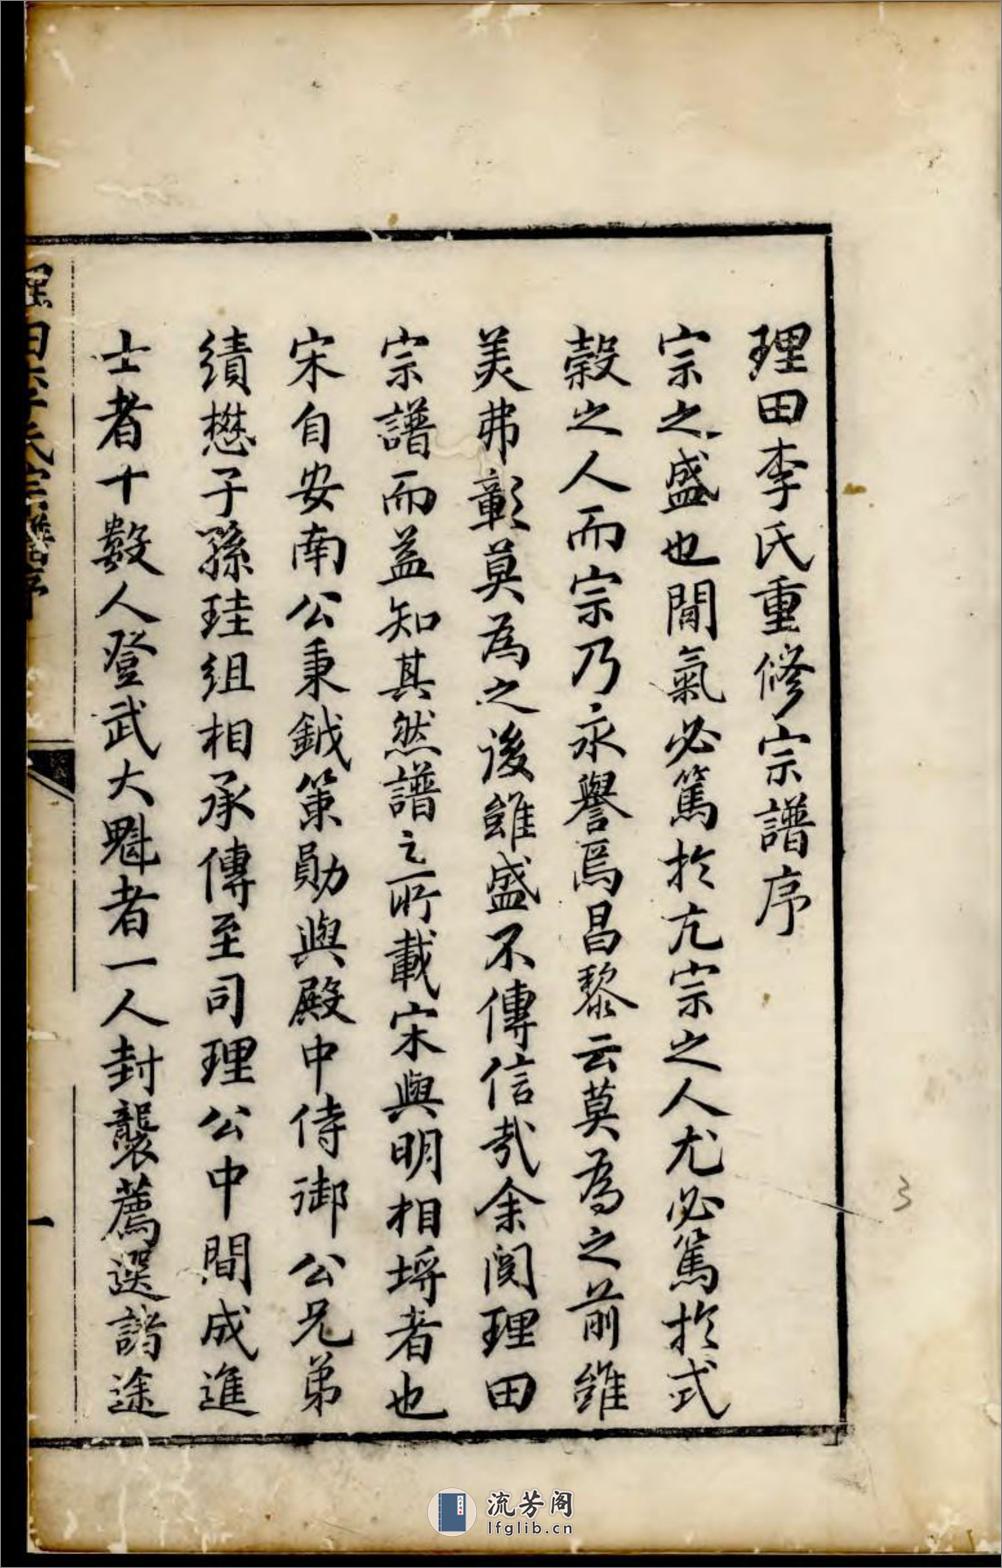 理田李氏重修宗譜序
宗之盛也閒氣必篤於亢宗之人尤必篤於式
穀之人而宗乃永譽焉昌黎云莫為之前雖
美弗彰莫為之後雖盛不傳信哉余閱理田
宗譜而益知其然譜之所載宋與明相埒者也
宋自安南公秉鉞策勛與殿中侍御公兄弟
績懋子孫珪組相承傳至司理公中間成進
士者十數人登武大魁者一人封襲薦選諸途
理田李氏宗譜序
一
3
流芳阁
lfglib.cn